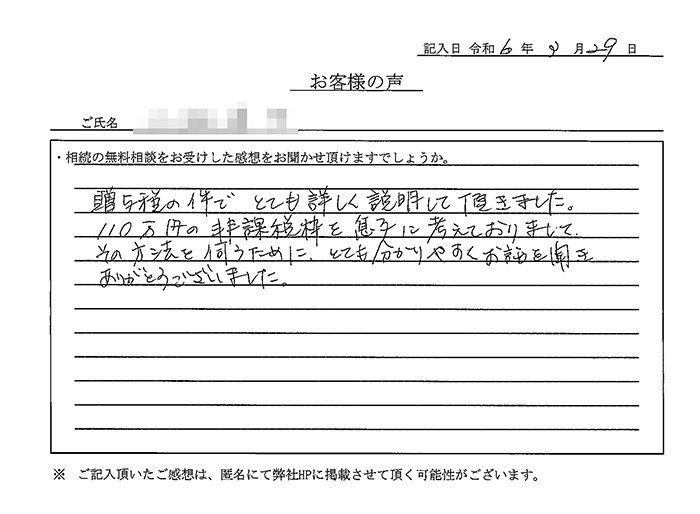 記入日 令和 6 年 2 月 29 日
お客様の声
ご氏名
・相続の無料相談をお受けした感想をお聞かせ頂けますでしょうか。
贈与税の件で とても詳しく説明して頂きました。
110万円の非課税枠を息子に考えておりまして、
その方法を伺うために、とても分かりやすくお話を聞き
ありがとうございました。
※ ご記入頂いたご感想は、匿名にて弊社HPに掲載させて頂く可能性がございます。